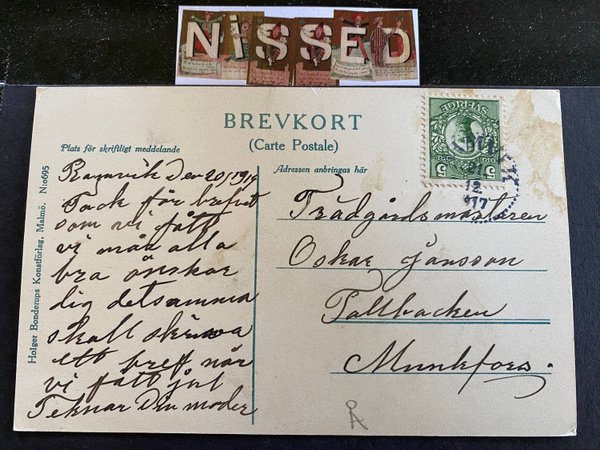 NiSSED
BREVKORT
(Carte Postale)
Plats för skriftligt meddelande
Adressen anbringas här
Holger Bonderups Konstförlag, Malmö. N:o695
SVERIGE
5 5
21
12
17
Den 20/12 19
Tack för brefvet
som vi fått
vi mår alla
bra önskar
dig detsamma
skall skrifva
ett bref när
vi fått jul
Teknar Din moder
Trädgårdsmästeren
Oskar Jansson
Tallbacken
Munkfors.
Å